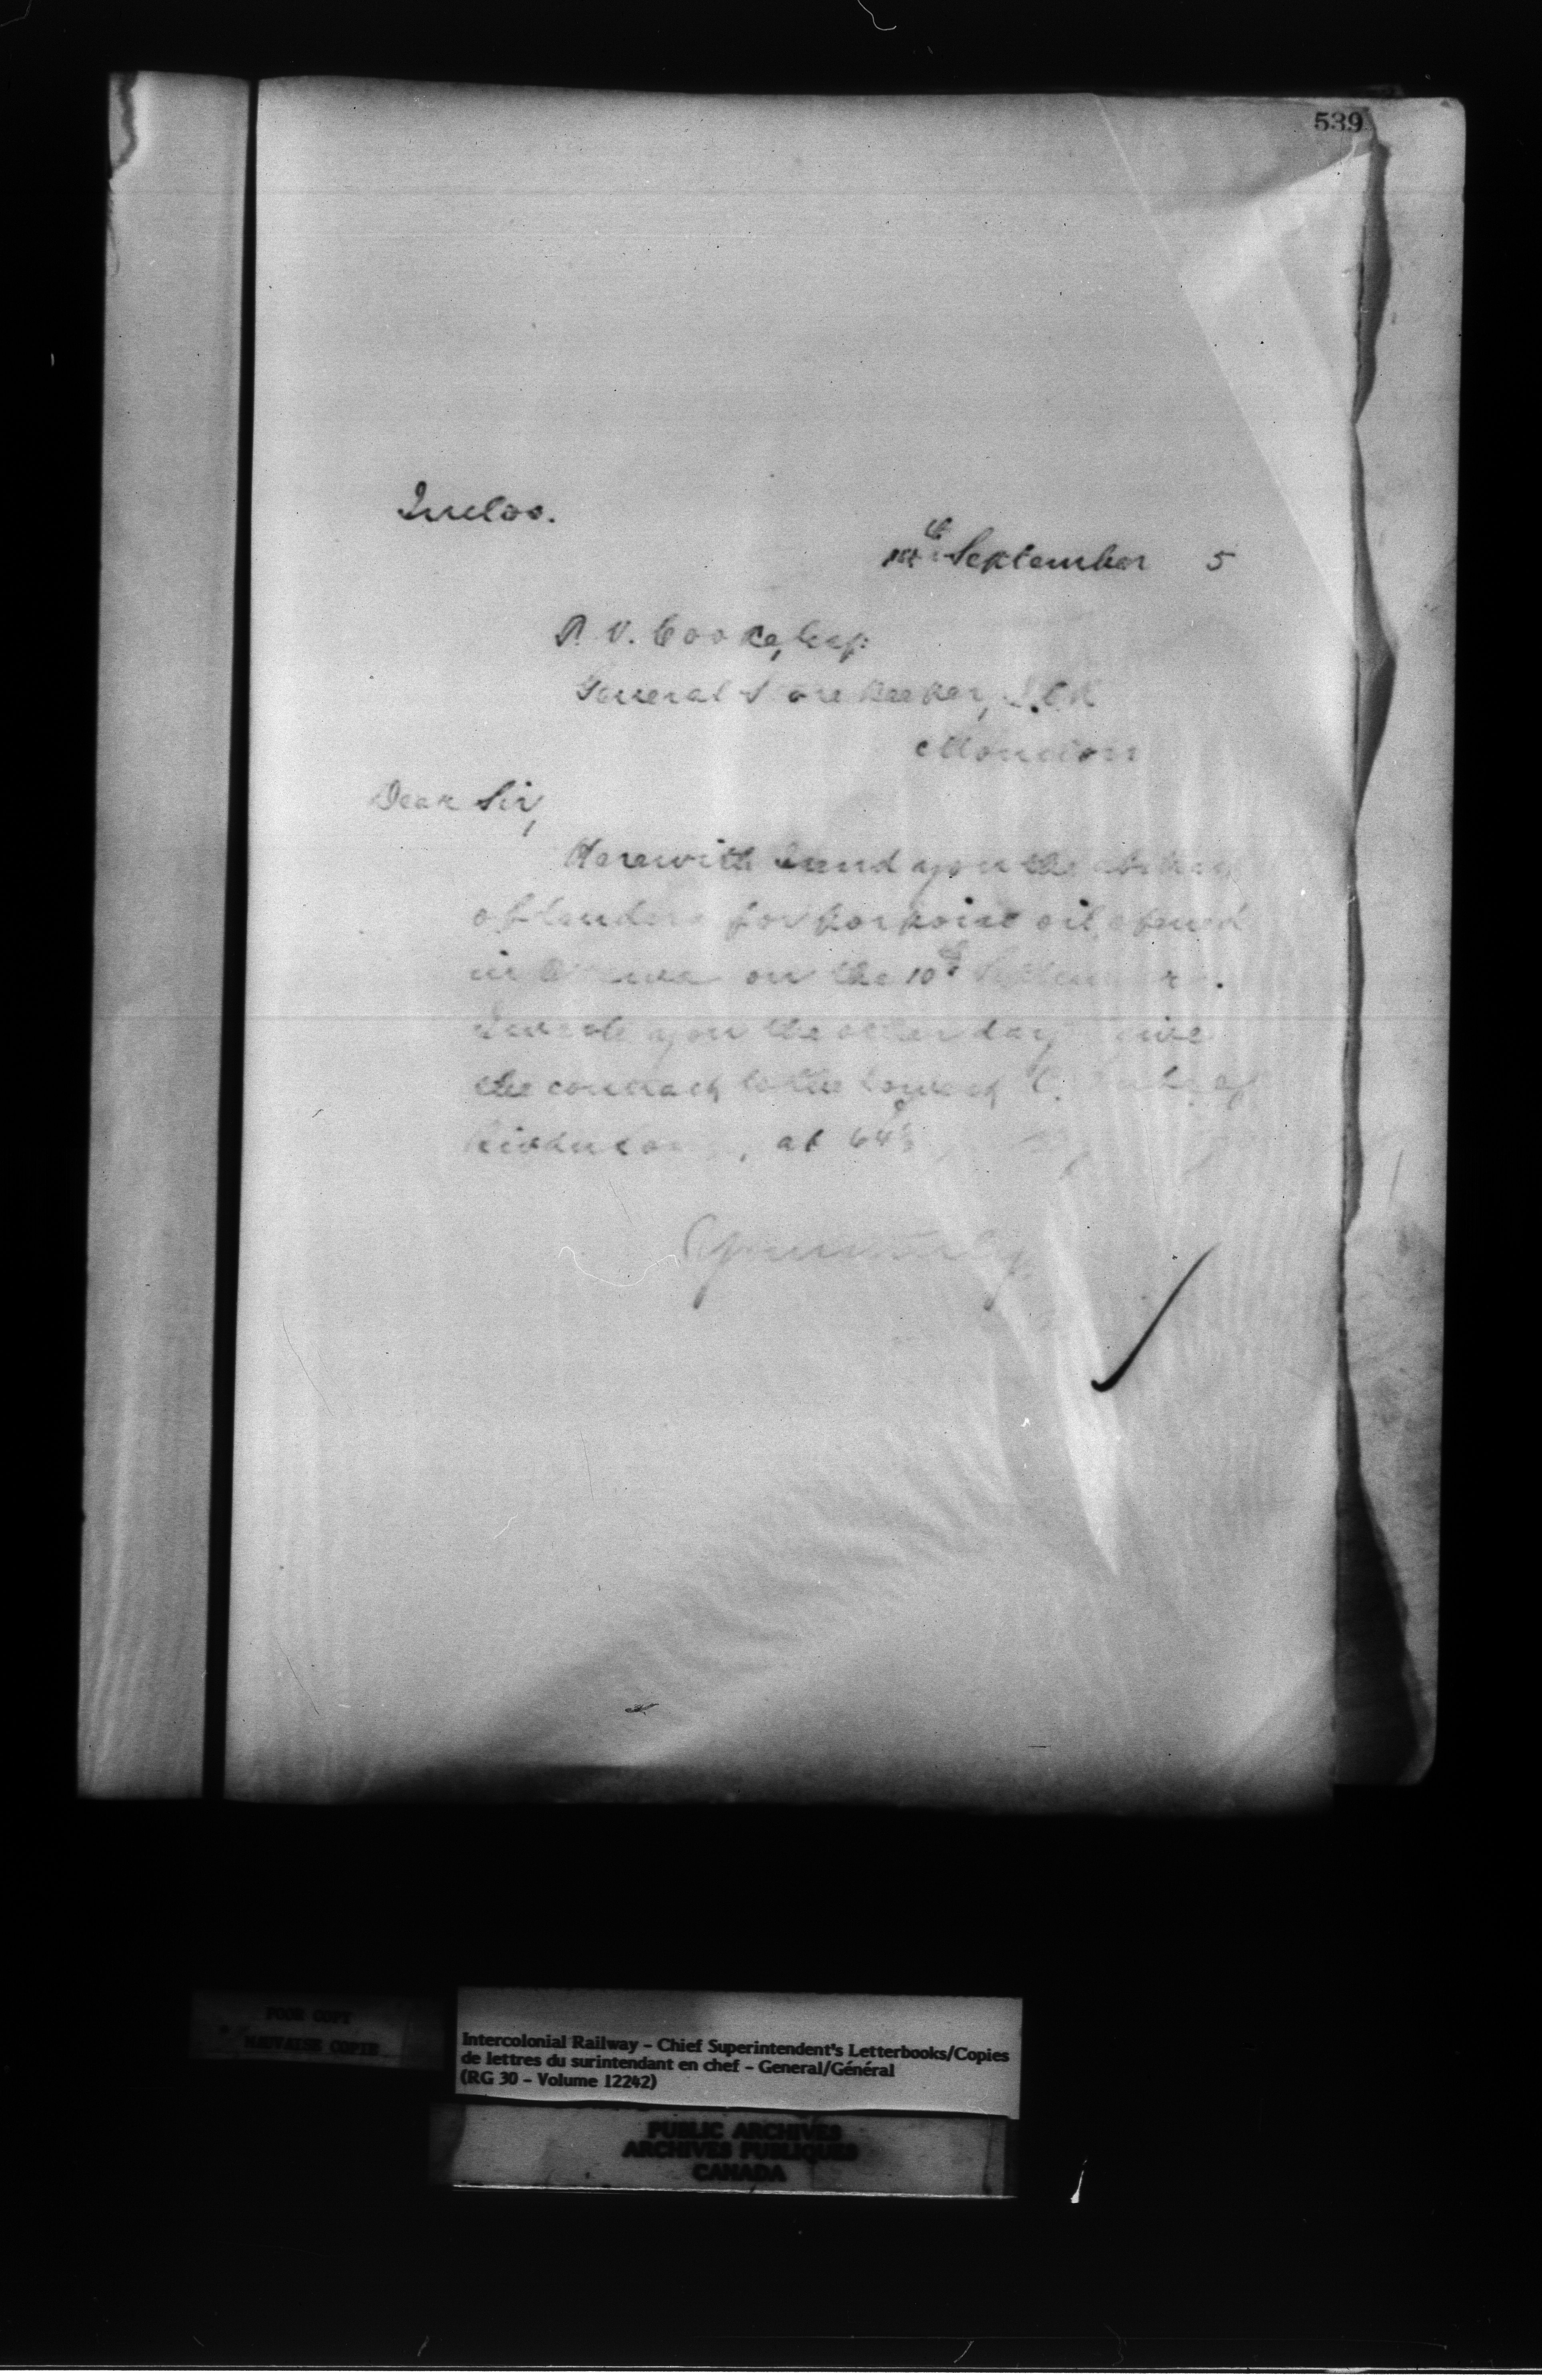 539
Inclos.
th September 5
P. V. Cooke, Esq:
General Storekeeper, I.C.R
Moncton
Dear Sir,
Herewith I send you the
of tenders for porpoise oil, opened
in Ottawa on the 10th September.
I wrote you the other day give
the contract to the lowest C. of
at
Yours truly
POOR COPY
MAUVAISE COPIE
Intercolonial Railway - Chief Superintendent's Letterbooks/Copies
de lettres du surintendant en chef - General/Général
(RG 30 - Volume 12242)
PUBLIC ARCHIVES
ARCHIVES PUBLIQUES
CANADA